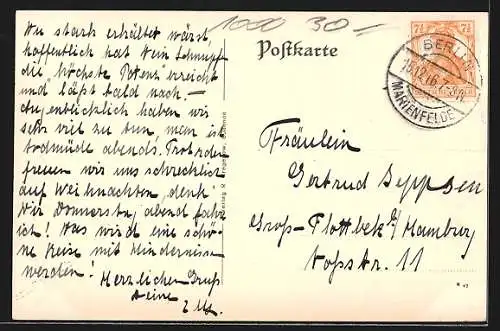 1000 30-
Postkarte
7½ 7½
BERLIN
15.12.16
MARIENFELDE
Du stark erkältet warst,
hoffentlich hat Dein Schnupfen
die höchste Potenz erreicht
und läßt bald nach. —
Augenblicklich haben wir
sehr viel zu tun, man ist
todmüde abends. Trotzdem
freuen wir uns schrecklich
auf Weihnachten, denk'
Dir Donnerstag abend fahre
ich! Das wird eine schö-
ne Reise mit Hindernissen
werden! Herzlichen Gruß
Deine
Fräulein
Gertrud Jeppsen
Groß-Flottbek b/ Hamburg
Voßstr. 11